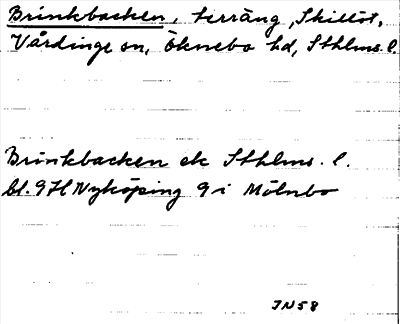 Brinkbacken, terräng, Skillöt,
Vårdinge sn, Öknebo hd, Sthlms. l.
Brinkbacken ek Sthlms. l.
bl. 9H Nyköping 9 i Mölnbo
JN58